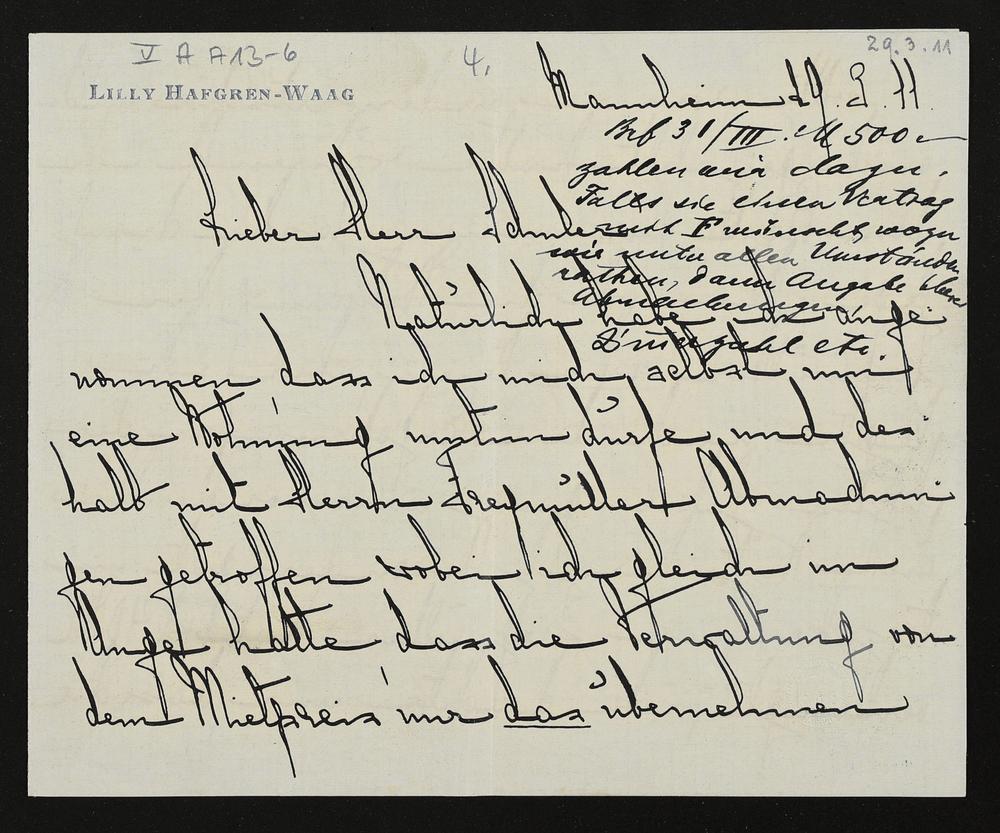 V A A13-6
4.
29.3.11
LILLY HAFGREN-WAAG
Mannheim 29. 3. 11.
31/III. M 500.-
zahlen wir dazu.
Falls sie einen Vertrag
mit F wünscht, wozu
wir unter allen Umständen
rathen, dann Angabe über
Abmachungen,
etc.
Lieber Herr
Natürlich habe ich ange
nommen dass ich mich selbst um
eine Wohnung mühen dürfe und des
halb mit Herrn Abmachun
gen getroffen wobei ich gleich im
Auge hatte dass die Verwaltung von
dem Mietspreis nur das übernehmen